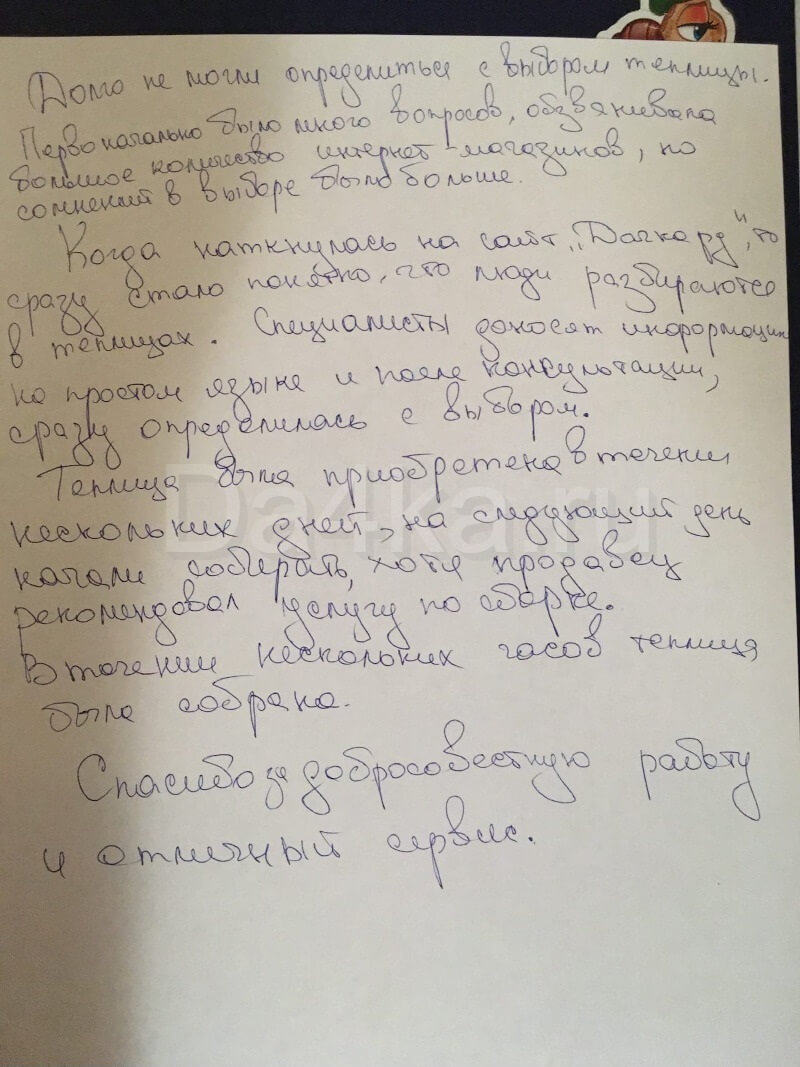 Долго не могли определиться с выбором теплицы.
Первоначально было много вопросов, обзванивала
большое количество интернет-магазинов, но
сомнений в выборе было больше.
Когда наткнулась на сайт „Дачкард", то
сразу стало понятно, что люди разбираются
в теплицах. Специалисты доносят информацию
на простом языке и после консультации,
сразу определилась с выбором.
Теплица была приобретена в течении
нескольких дней, на следующий день
начали собирать, хотя продавец
рекомендовал услугу по сборке.
В течении нескольких часов теплица
была собрана.
Спасибо за добросовестную работу
и отличный сервис.
Da4ka.ru